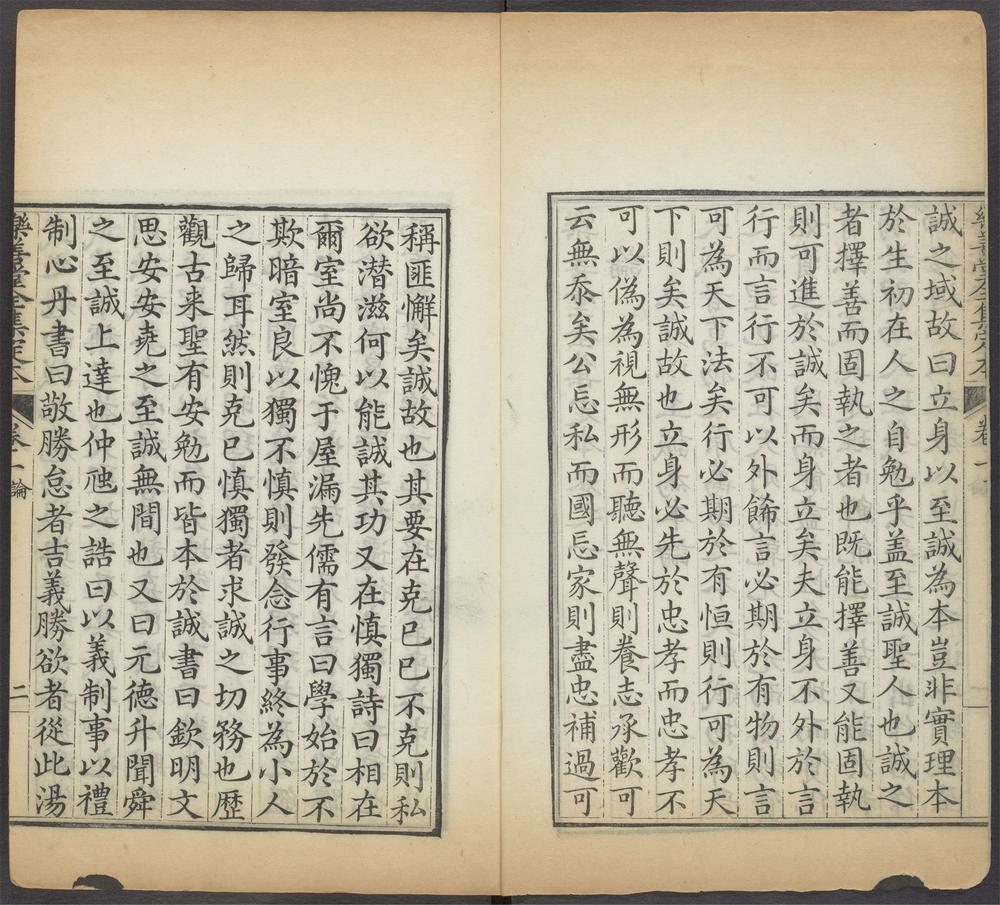 樂善堂全集定本 卷一
誠之域故曰立身以至誠為本豈非實理本
於生初在人之自勉乎盖至誠聖人也誠之
者擇善而固執之者也既能擇善又能固執
則可進於誠矣而身立矣夫立身不外於言
行而言行不可以外餙言必期於有物則言
可為天下法矣行必期於有恒則行可為天
下則矣誠故也立身必先於忠孝而忠孝不
可以偽為視無形而聽無聲則養志承歡可
云無忝矣公忘私而國忘家則盡忠補過可
稱匪懈矣誠故也其要在克已已不克則私
欲潛滋何以能誠其功又在慎獨詩曰相在
爾室尚不愧于屋漏先儒有言曰學始於不
欺暗室良以獨不慎則發念行事終為小人
之歸耳然則克已慎獨者求誠之切務也歷
觀古来聖有安勉而皆本於誠書曰欽明文
思安安堯之至誠無間也又曰元德升聞舜
之至誠上達也仲虺之誥曰以義制事以禮
制心丹書曰敬勝怠者吉義勝欲者從此湯
樂善堂全集定本 卷一 論 二